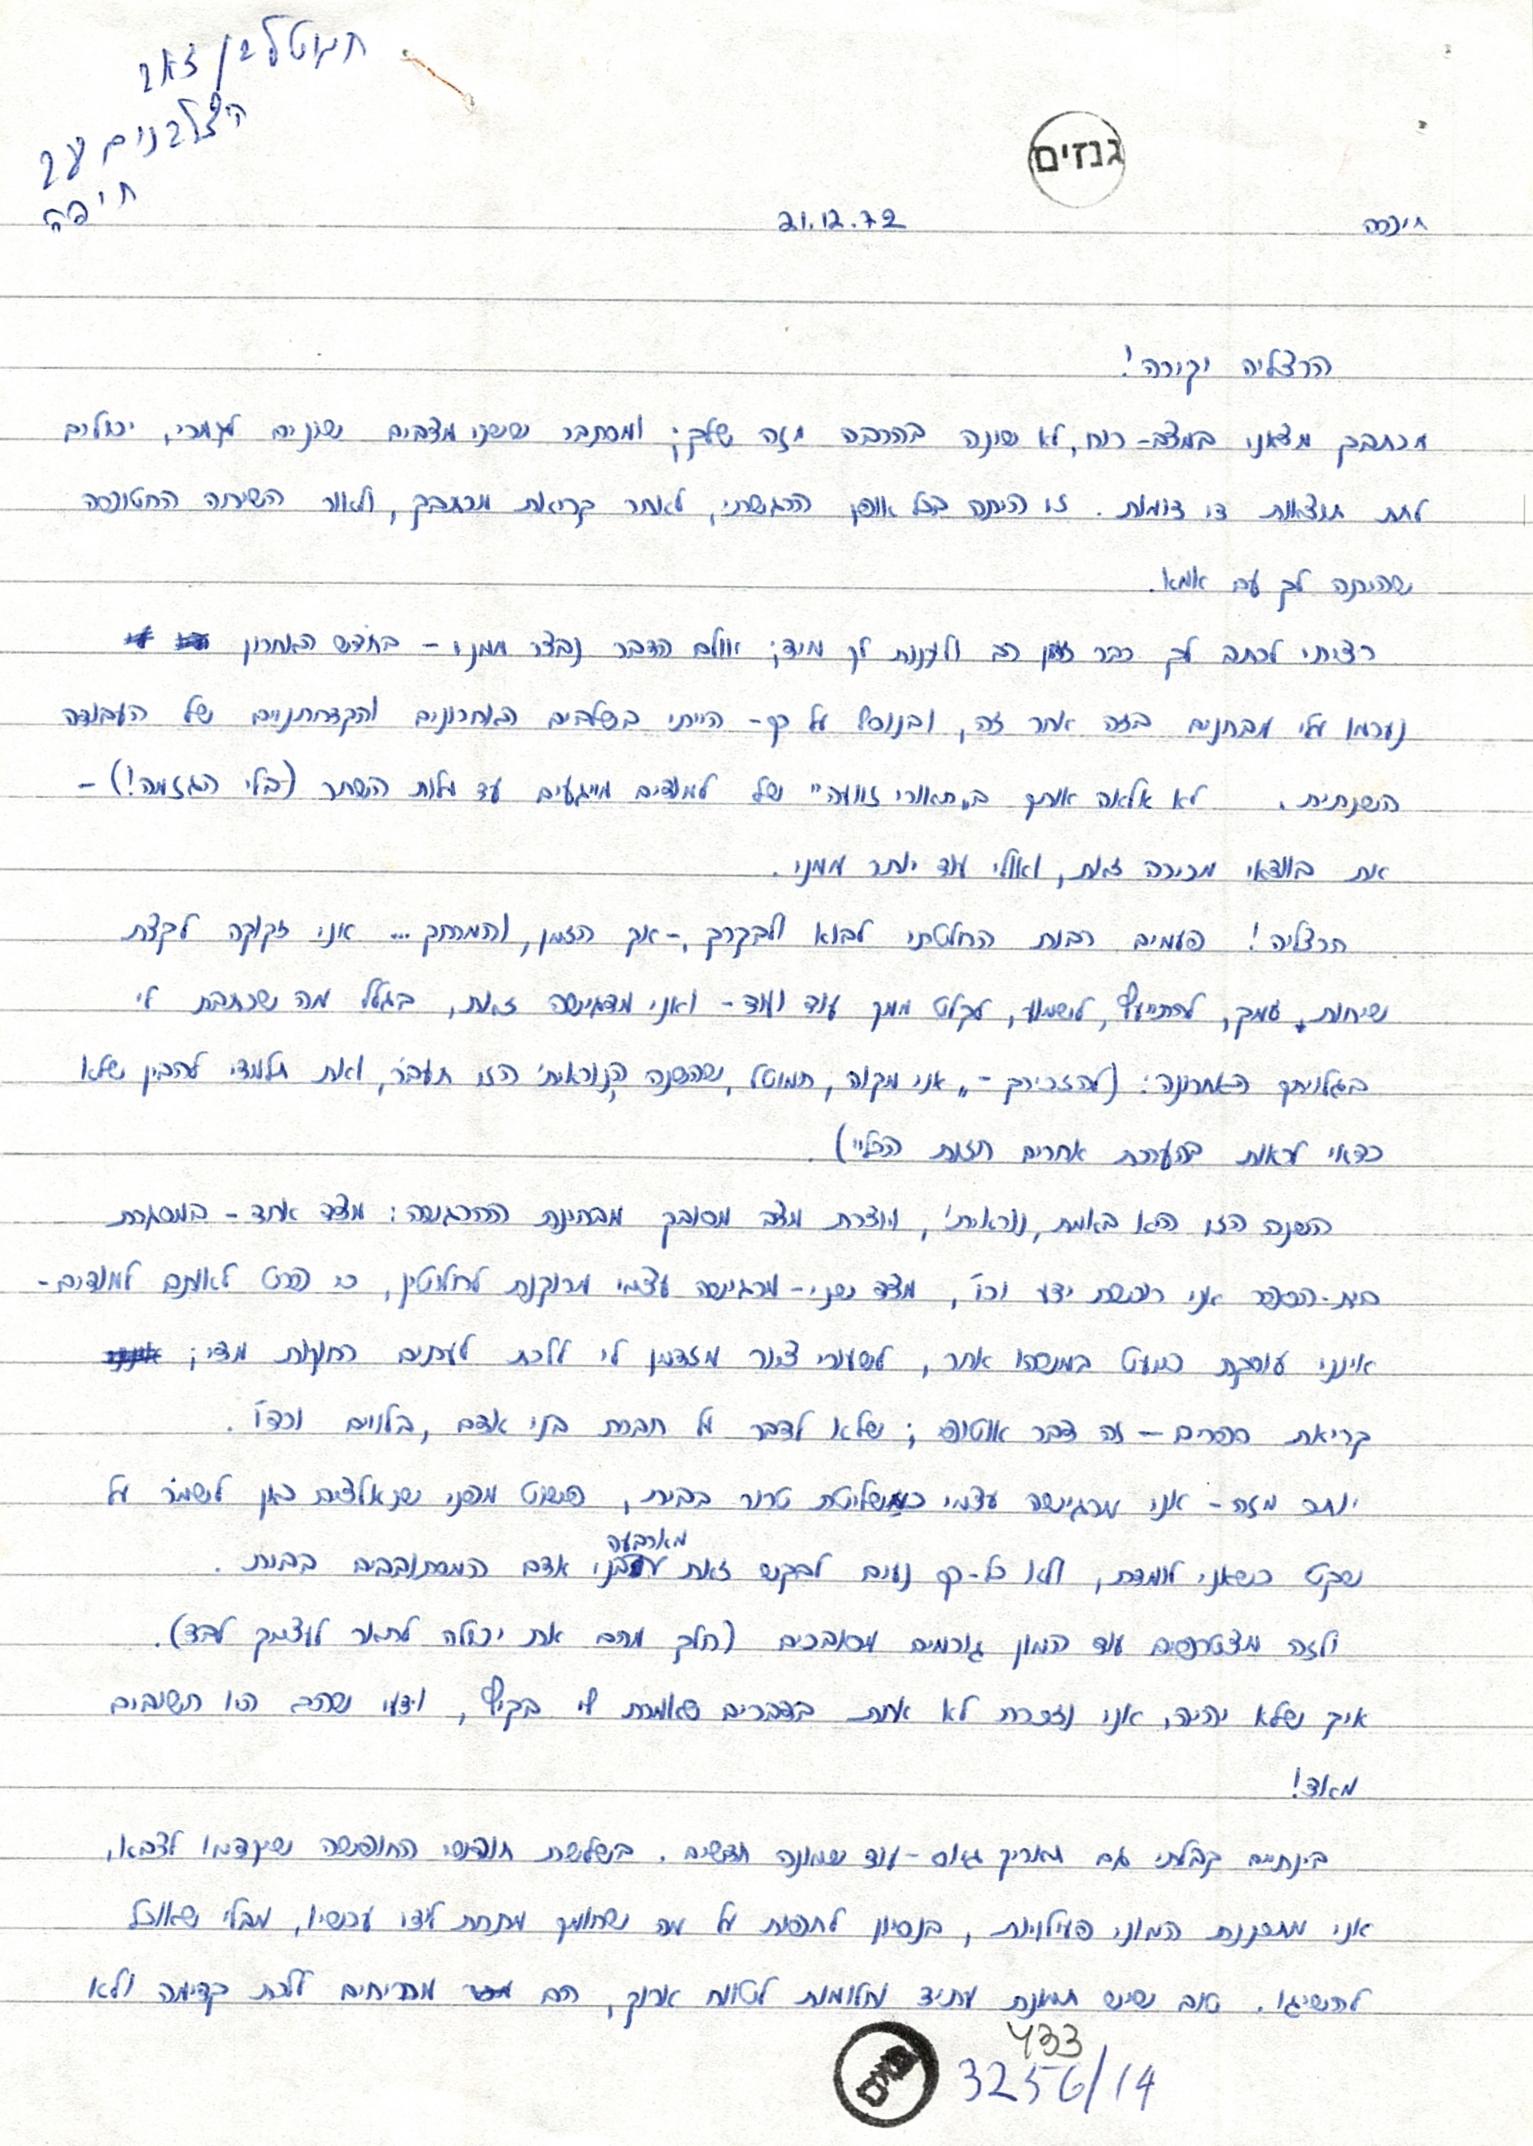 חמוטל בן זאב
הצלבנים 2ע
חיפה
גנזים
חיפה 21.12.72
הרצליה יקרה!
מכתבך מצאני במצב-רוח, לא שונה בהרבה מזה שלך; ומסתבר ששני מצבים שונים לגמרי, יכולים
לתת תוצאות די דומות. זו היתה בכל אופן הרגשתי, לאחר קריאת מכתבך, ולאור השיחה החטופה
שהיתה לך עם אמא.
רציתי לכתב לך כבר זמן רב ולענות לך מיד; אולם הדבר נבצר ממני - בחודש האחרון
נערמו עלי מבחנים בזה אחר זה, ובנוסף על כך - הייתי בשלבים האחרונים והקדחתניים של העבודה
השנתית. לא אלאה אותך ב"תאורי זוועה" של למודים מייגעים עד מלות השחר (בלי הגזמה!) -
את בוודאי מכירה זאת, ואולי עוד יותר ממני.
הרצליה! פעמים רבות החלטתי לבוא ולבקרך, - אך הזמן, והמרחק... אני זקוקה לקצת
שיחות עמך, להתייעץ, לשמוע, לקלוט ממך עוד ועוד - ואני מדגישה זאת, בגלל מה שכתבת לי
בגלויתך האחרונה: (להזכירך - "אני מקוה, חמוטל, שהשנה ה'נוראית' הזו תעבר, ואת תלמדי להבין שלא
כדאי לראות בהערכת אחרים חזות הכל").
השנה הזו היא באמת 'נוראית', ויוצרת מצב מסובך מבחינת ההרגשה: מצד אחד - במסגרת
בית-הספר אני רוכשת ידע וכו', מצד שני - מרגישה עצמי מרוקנת לחלוטין, כי פרט לאותם למודים -
אינני עוסקת כמעט במשהו אחר, לשעורי ציור מזדמן לי ללכת לעתים רחוקות מדי;
קריאת ספרים - זה דבר אוטופי; שלא לדבר על חברת בני אדם, בלויים וכדו'.
יותר מזה - אני מרגישה עצמי כמשליטת טרור בבית, פשוט מפני שנאלצים כאן לשמור על
שקט כשאני לומדת, ולא כל-כך נעים לבקש זאת מארבעה בני אדם המסתובבים בבית.
ולזה מצטרפים עוד המון גורמים מסובכים (חלק מהם את יכולה לתאר לעצמך לבד).
איך שלא יהיה, אני נזכרת לא אחת בדברים שאמרת לי בקיץ, ודעי שהם היו חשובים
מאוד!
בינתיים קבלתי גם תאריך גיוס - עוד שמונה חדשים. בשלושת חודשי החופשה שיקדמו לצבא,
אני מתכננת המוני פעילויות, בנסיון לחפות על מה שחומק מתחת לידי עכשיו, מבלי שאוכל
להשיגו. טוב שיש תמונת עתיד וחלומות לטווח ארוך, הם מכריחים ללכת קדימה ולא
433
3256/14